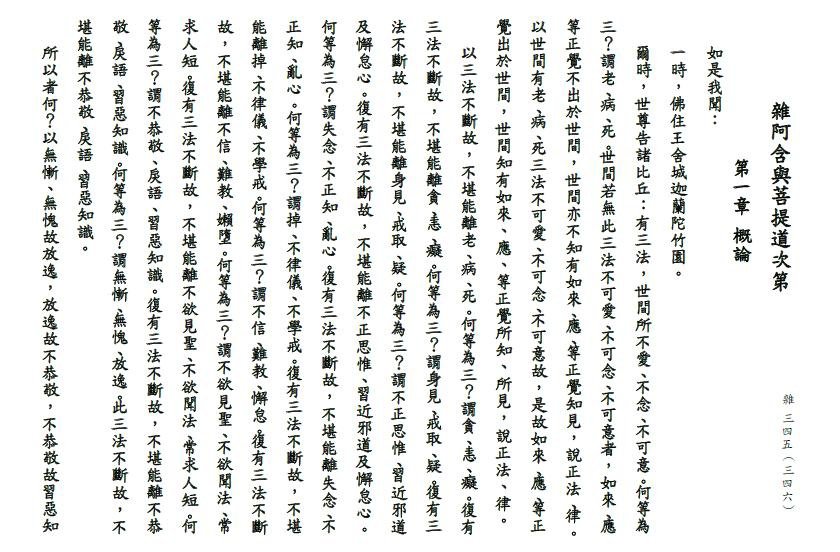 雜阿含與菩提道次第
雜 三四五（三四六）
第一章 概論
如是我聞：
一時，佛住王舍城迦蘭陀竹園。
爾時，世尊告諸比丘：有三法，世間所不愛、不念、不可意。何等為
三？謂老、病、死。世間若無此三法不可愛、不可念、不可意者，如來、應、
等正覺不出於世間，世間亦不知有如來、應、等正覺知見，說正法、律。
以世間有老、病、死三法不可愛、不可念、不可意故，是故如來、應、等正
覺出於世間，世間知有如來、應、等正覺所知、所見，說正法、律。
以三法不斷故，不堪能離老、病、死。何等為三？謂貪、恚、癡。復有
三法不斷故，不堪能離貪、恚、癡。何等為三？謂身見、戒取、疑。復有三
法不斷故，不堪能離身見、戒取、疑。何等為三？謂不正思惟、習近邪道
及懈怠心。復有三法不斷故，不堪能離不正思惟、習近邪道及懈怠心。
何等為三？謂失念、不正知、亂心。復有三法不斷故，不堪能離失念、不
正知、亂心。何等為三？謂掉、不律儀、不學戒。復有三法不斷故，不堪
能離掉、不律儀、不學戒。何等為三？謂不信、難教、懈怠。復有三法不斷
故，不堪能離不信、難教、嬾墮。何等為三？謂不欲見聖、不欲聞法、常
求人短。復有三法不斷故，不堪能離不欲見聖、不欲聞法、常求人短。何
等為三？謂不恭敬、戾語、習惡知識。復有三法不斷故，不堪能離不恭
敬、戾語、習惡知識。何等為三？謂無慚、無愧、放逸。此三法不斷故，不
堪能離不恭敬、戾語、習惡知識。
所以者何？以無慚、無愧故放逸，放逸故不恭敬，不恭敬故習惡知